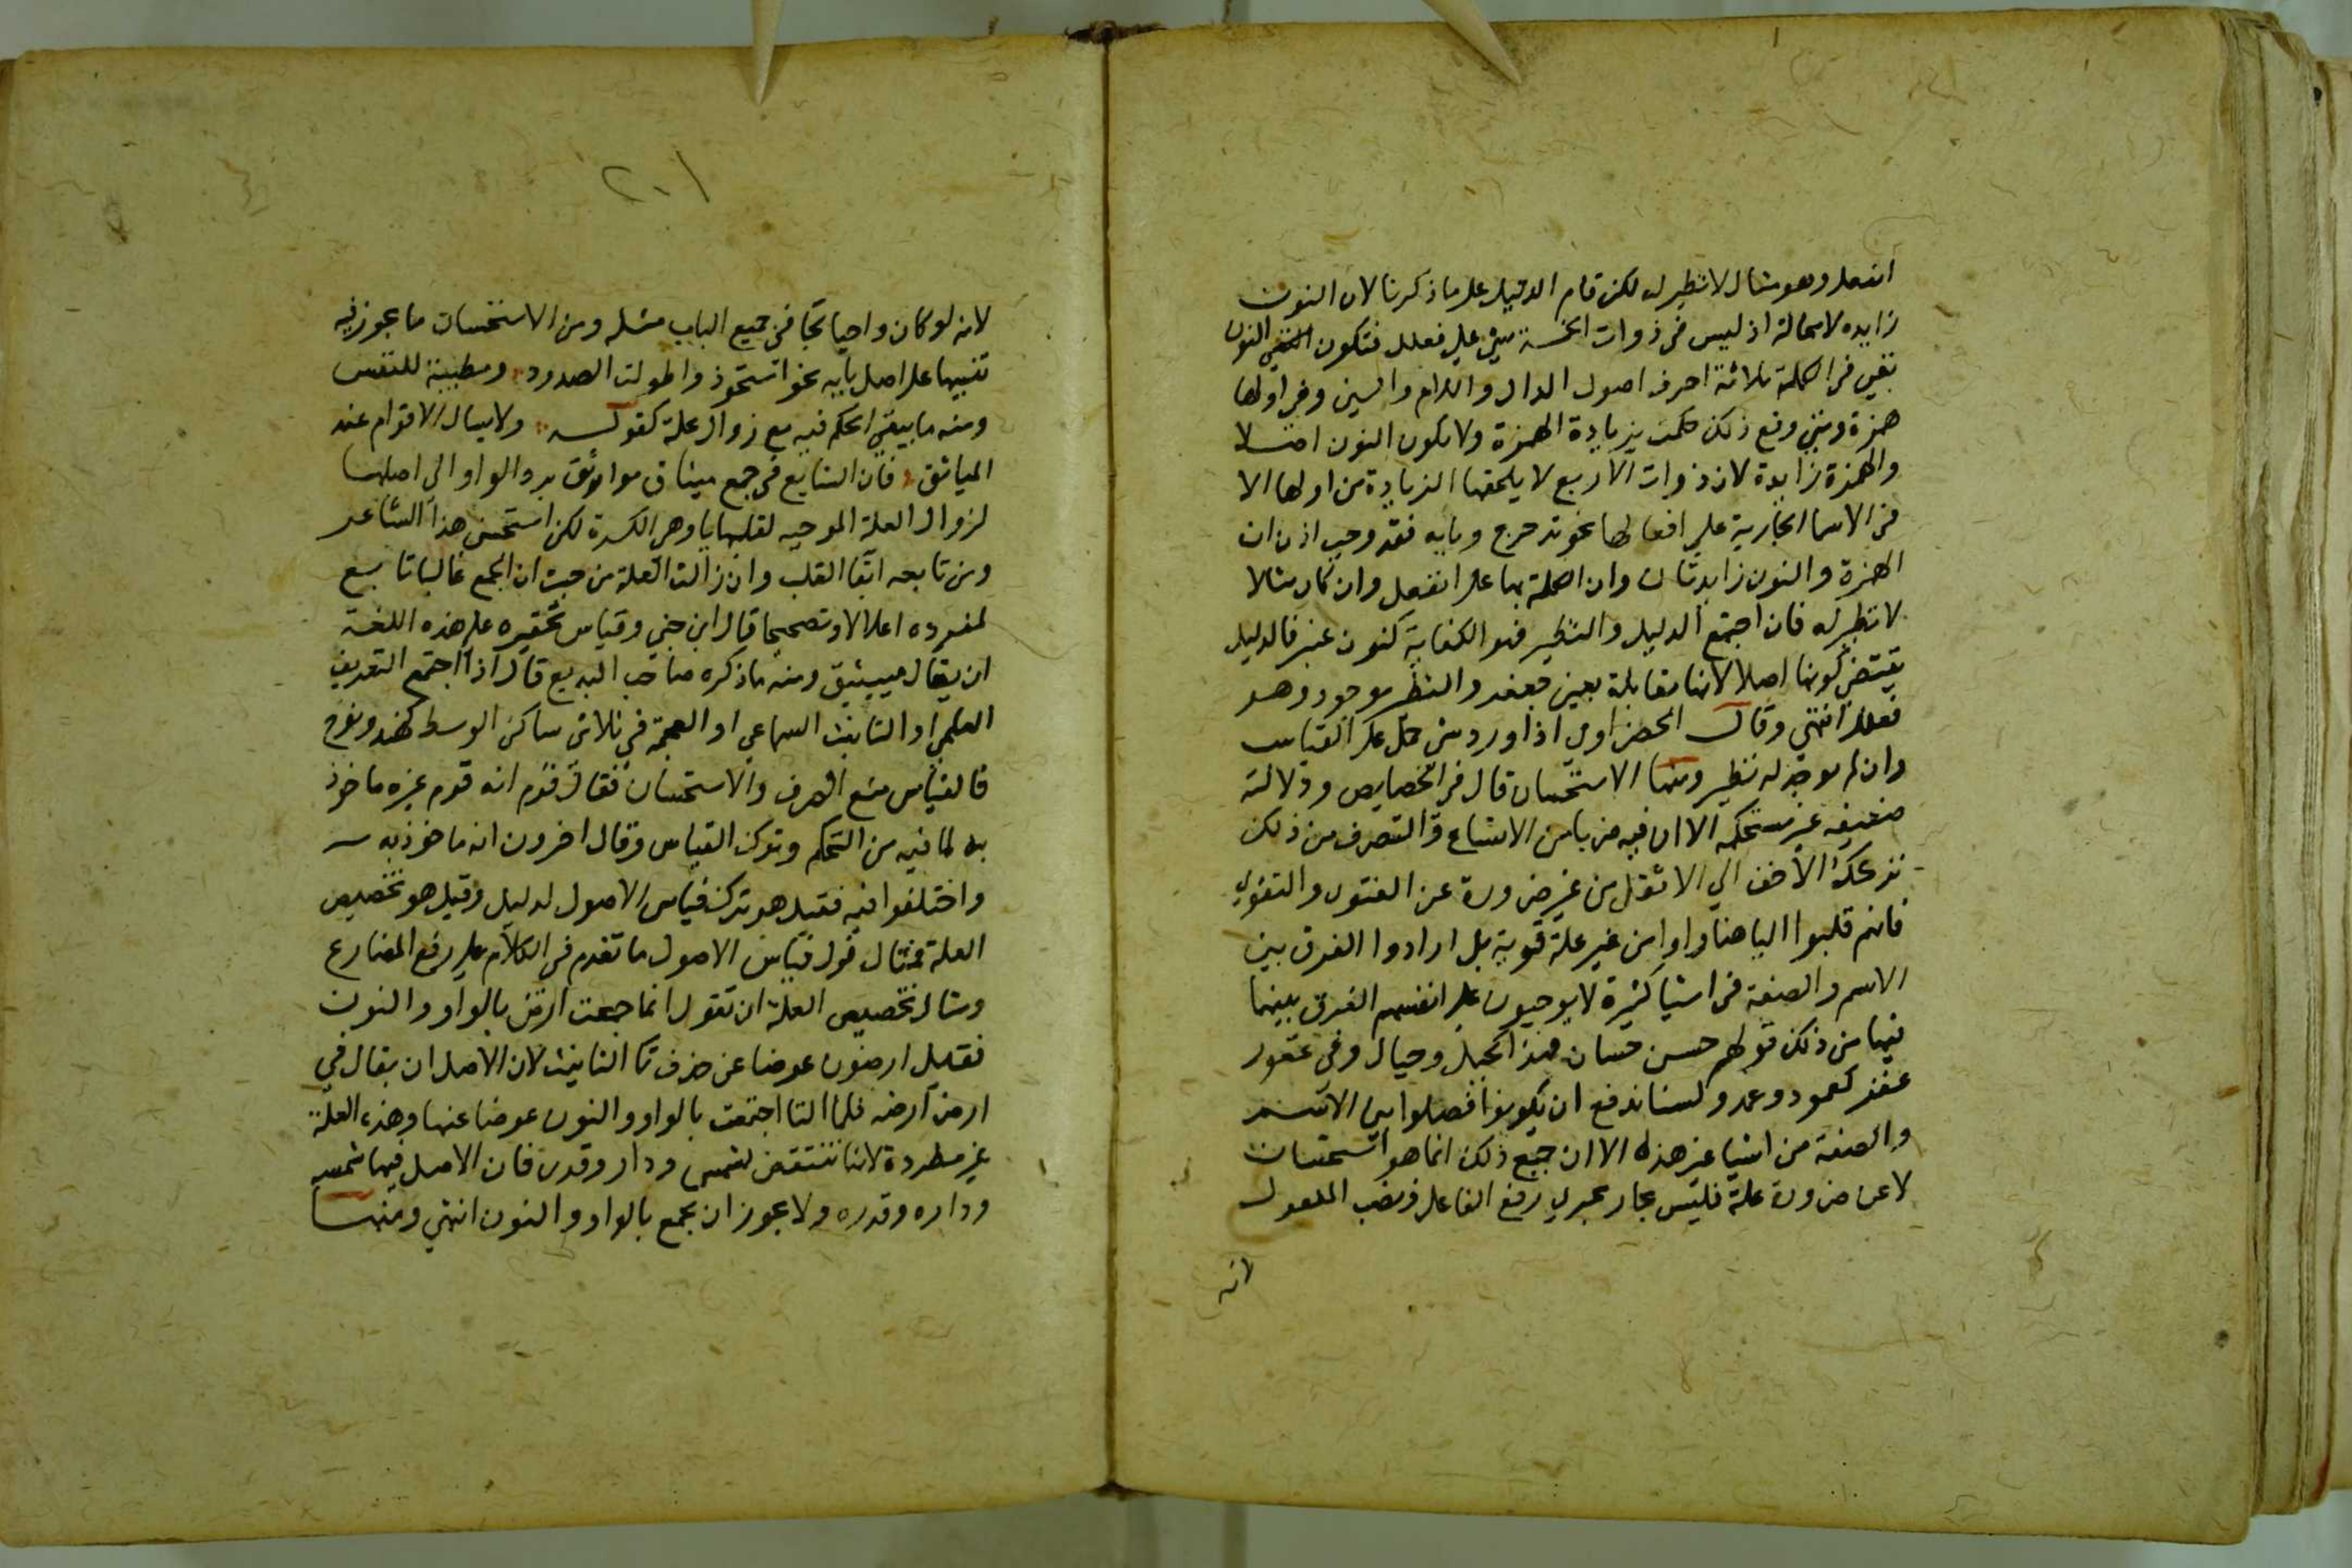 انفعل وهو مثال لا نظير له لكن قام الدليل على ما ذكرنا لان النون
زايده لا محالة اذ ليس في ذوات الخمسة شي على فعلل فتكون النون
بقي في الكلمة ثلاثة احرف اصول الدال واللام والسين وفي اولها
همزة ومتي وقع ذلك حكمت بزيادة الهمزة ولا يكون النون اصلا
والهمزة زايدة لان ذوات الاربع لا يلحقها الزيادة من اولها الا
في الاسما الجارية علي افعالها نحو تدحرج وبابه فقد وجب اذن ان
الهمزة والنون زايدتان وان الكلمة بها على انفعل وان كان مثالا
لا نظير له فان اجتمع الدليل والنظير فهو الكفاية كنون عنبر فالدليل
يقتضي كونها اصلا لانها مقابلة بعين جعفر والنظر موجود وهو
فعلل انتهي وقال الخضراوي اذا ورد شي حمل علي القياس
وان لم يوجد له نظير ومنها الاستحسان قال في الخصايص ودلالته
ضعيفه غير مستحكمه الا ان فيه ضربا من الاتساع والتصرف من ذلك
تركك الاخف الي الاثقل من غير ضرورة عن الفتوي والتقوي
فانهم قلبوا اليا هنا واوا من غير علة قوية بل ارادوا الفرق بين
الاسم والصفة في اشيا كثيرة لا يوجبون علي انفسهم الفرق بينهما
فيها من ذلك قولهم حسن حسان فهذا كجبل وجبال وغفور
غفر كعمود وعمد ولسنا ندفع ان يكونوا فصلوا بين الاسم
والصفة من اشيا غير هذه الا ان جميع ذلك انما هو استحسان
لا عن ضرورة علة فليس بجار مجري رفع الفاعل ونصب المفعول
لانه
٢٠١
لانه لو كان واجبا لجا في جميع الباب مثله ومن الاستحسان ما يجوز فيه
تنبيها على اصل بابه نحو استحوذ واطولت الصدود ومطيبة للنفس
ومنه ما يبقي الحكم فيه مع زوال علة كقوله ولا يسال الاقوام عقد
المياثق فان الشايع في جمع ميثاق مواثق برد الواو الي اصلها
لزوال العلة الموجبه لقلبها يا وهي الكسرة لكن استحسن هذا الشاعر
ومن تابعه ابقا القلب وان زالت العلة من حيث ان الجمع غالبا تابع
لمفرده اعلالا وتصحيحا قال ابن جني وقياس تحقيره علي هذه اللغة
ان يقال مييثيق ومنه ما ذكره صاحب البديع قال اذا اجتمع التعريف
العلمي او التانيث السماعي او العجمة في ثلاثي ساكن الوسط كهند ونوح
فالقياس منع الصرف والاستحسان فقال قوم انه قوم غيره ماخوذ
به لما فيه من التحكم وترك القياس وقال اخرون انه ماخوذ به
واختلفوا فيه فقيل هو ترك قياس الاصول لدليل وقيل هو تخصيص
العلة فمثال قول قياس الاصول ما تقدم في الكلام علي رفع المضارع
ومثال تخصيص العلة ان تقول انما جمعت ارض بالواو والنون
فقيل ارضون عوضا عن حذف تا التانيث لان الاصل ان يقال في
ارض ارضه فلما التا اجتمعت بالواو والنون عوضا عنها وهذه العلة
غير مطردة لانها تنتقض لشمس ودار وقدر فان الاصل فيها شمسه
وداره وقدره ولا يجوز ان يجمع بالواو والنون انتهي ومنها